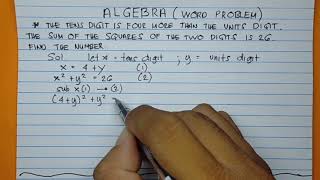 ALGEBRA (WORD PROBLEM)
* THE TENS DIGIT IS FOUR MORE THAN THE UNITS DIGIT.
THE SUM OF THE SQUARES OF THE TWO DIGITS IS 26.
FIND THE NUMBER.
Sol let x = tens digit ; y = units digit
x = 4 + y (1)
x² + y² = 26 (2)
sub x (1) → (2)
(4+y)² + y² =